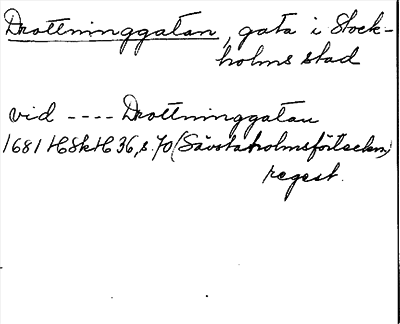 Drottninggatan, gata i Stock-
holms stad
vid ---- Drottninggatan
1681 HSkH 36, s. 70 (Sävstaholmsförteckn.)
regest.